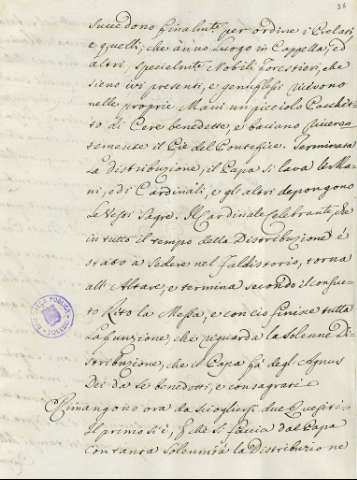 38
succedono finalmte per ordine i Prelati,
e quelli, che anno luogo in Cappella, ed
altri, specialmte Nobili forestieri, che
sieno ivi presenti, e genuflessi ricevono
nelle proprie Mani un piccolo Pacchet-
to di Cere benedette, e baciano riveren-
temente il Piè del Pontefice. Terminata
la distribuzione, il Papa si lava le Ma-
ni, ed i Cardinali, e gli altri depongono
le Vesti Sagre. Il Cardinale Celebrante, che
in tutto il tempo della Distribuzione è
stato a sedere nel Faldistorio, torna
all' Altare, e termina secondo il consue-
to Rito la Messa, e con ciò finisce tutta
la funzione, che riguarda la solenne Di-
stribuzione, che il Papa fà degl' Agnus
Dei da se benedetti, e consagrati.
Rimangono ora da sciogliersi due Quesiti:
il primo si è, che si faccia dal Papa
con tanta solennità la Distribuzione